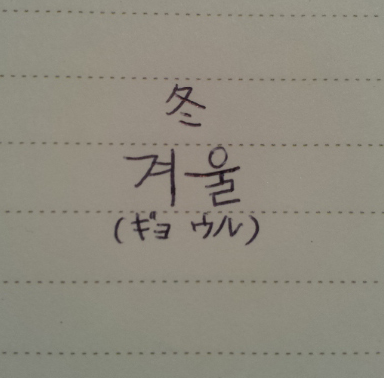 冬
겨울
(ギョ ウル)